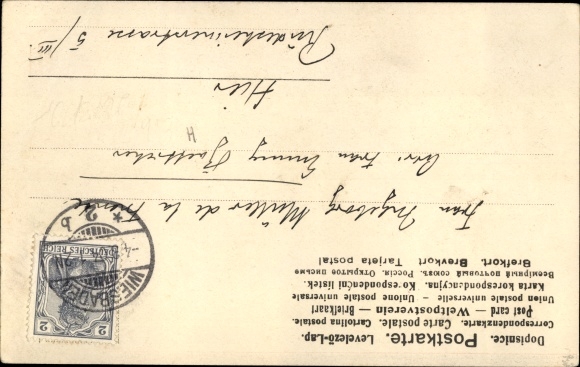 Dopisnice. Postkarte. Levelező-Lap.
Correspondenzkarte. Carte postale. Cartolina postale.
Post card — Weltpostverein — Briefkaart
Union postale universelle — Unione postale universale
Karta korespondencyjna. Korespondenční lístek.
Всемірный почтовый союзъ. Россія. Открытое письмо
Brefkort. Brevkort. Tarjeta postal
DEUTSCHES REICH
2 2
WIESBADEN
* 2 b
Frau Ingeborg Müller de la
Frau Emmy
H
Hier
Rüdesheimerstrasse 5/III.